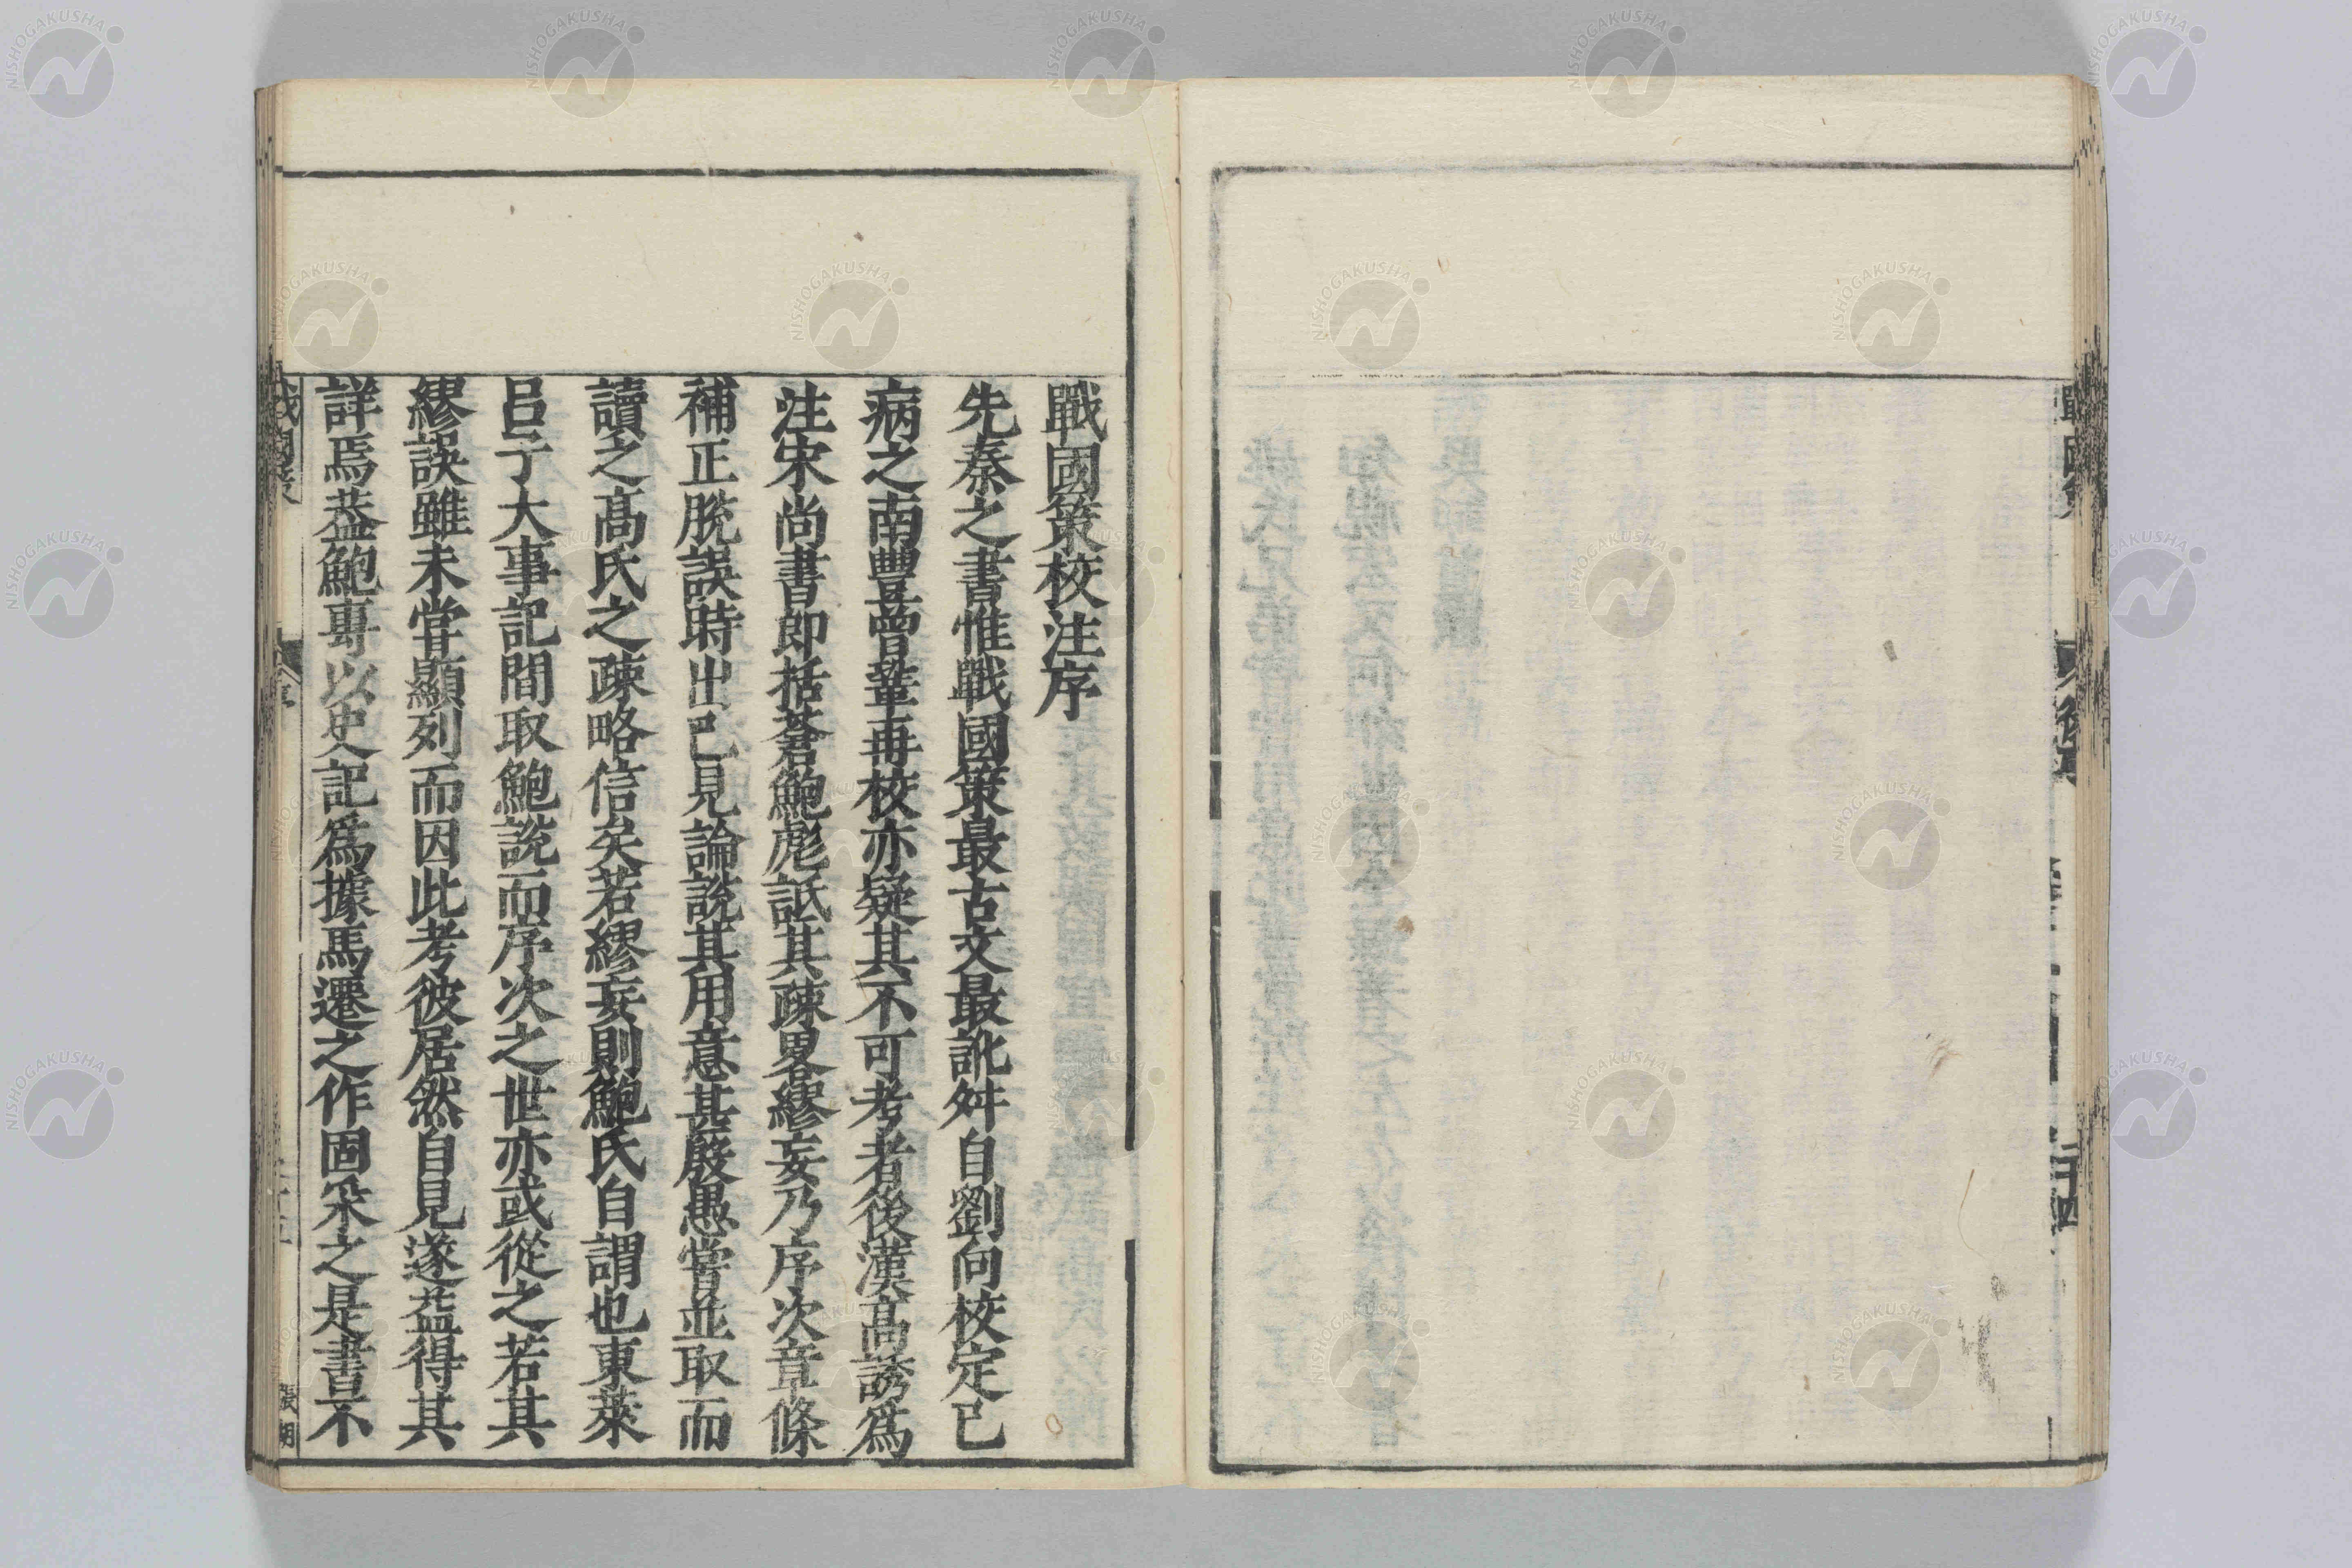 戰國策校注序
先秦之書惟戰國策最古文最訛舛自劉向校定已
病之南豐曾鞏再校亦疑其不可考者後漢高誘爲
注宋尚書郎括蒼鮑彪詆其疎畧繆妄乃序次章條
補正脫誤時出已見論說其用意甚殷愚嘗並取而
讀之高氏之疎略信矣若繆妄則鮑氏自謂也東萊
呂子大事記間取鮑說而序次之世亦或從之若其
繆誤雖未嘗顯列而因此考彼居然自見遂益得其
詳焉蓋鮑專以史記爲據馬遷之作固采之是書不
戰國策
序
NISHOGAKUSHA